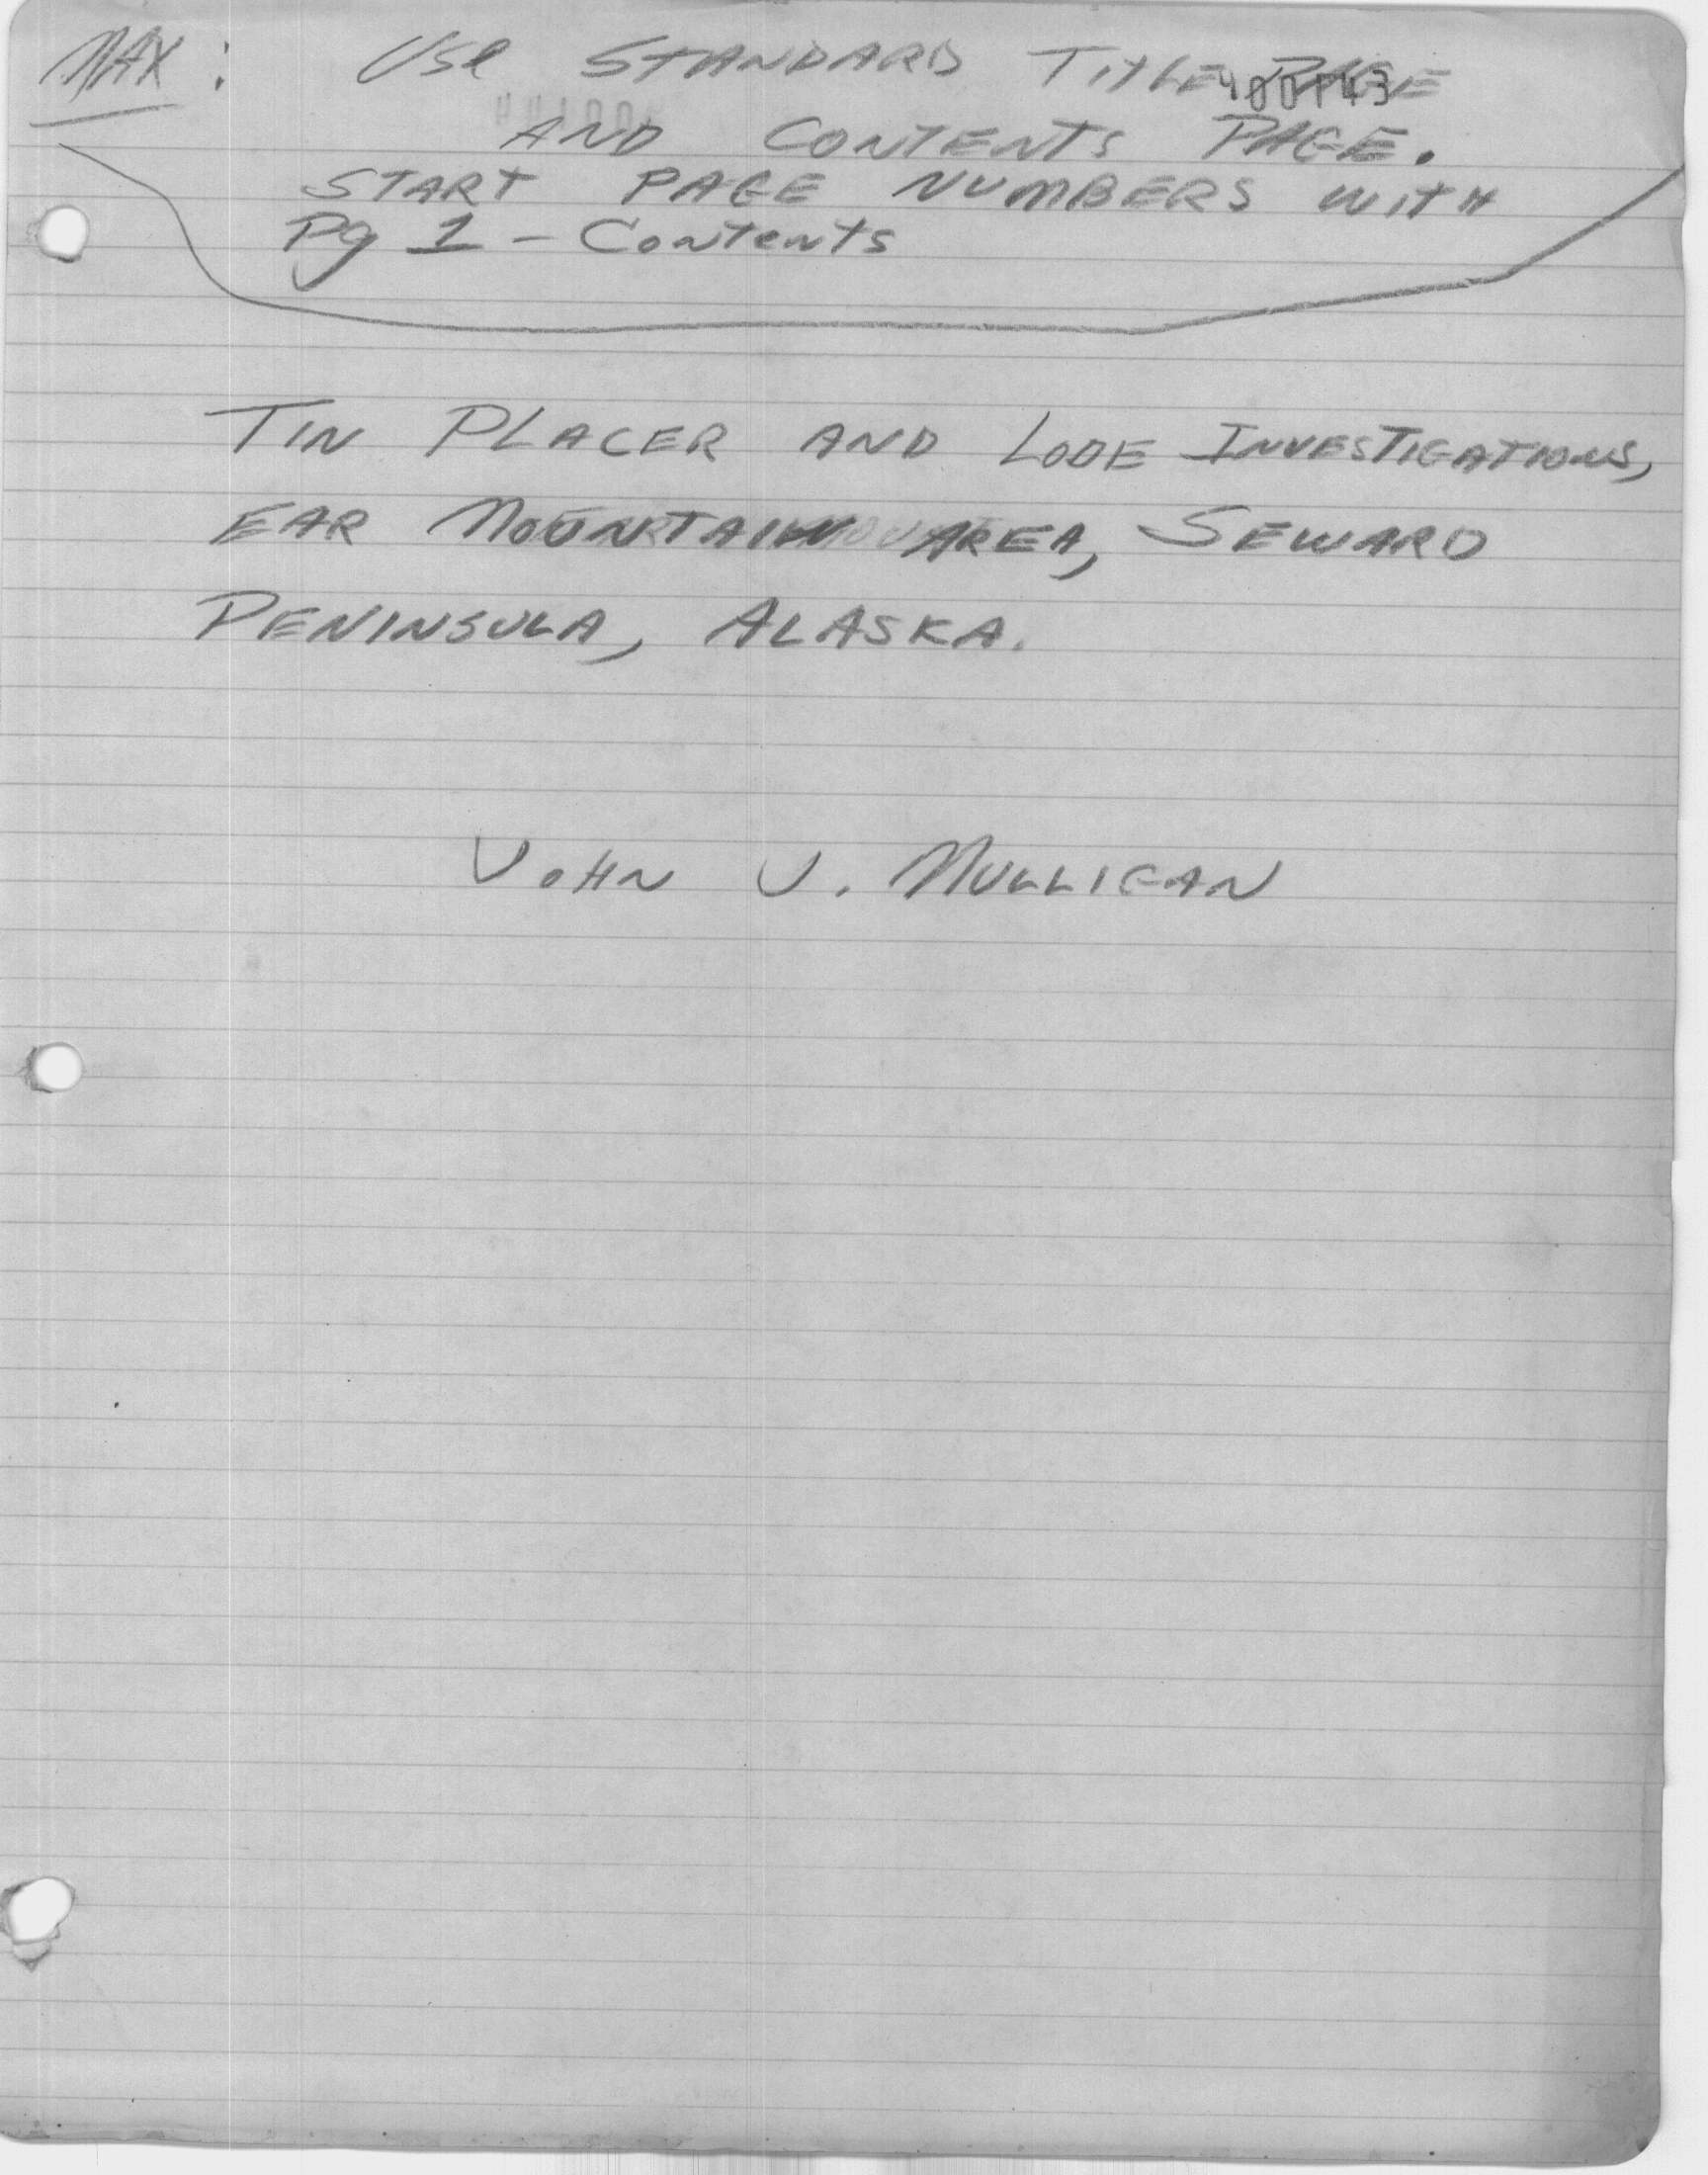 MAX: Use STANDARD TITLE PAGE
AND CONTENTS PAGE.
START PAGE NUMBERS WITH
Pg 1 - Contents
TIN PLACER AND LODE INVESTIGATIONS,
EAR MOUNTAIN AREA, SEWARD
PENINSULA, ALASKA.
JOHN J. MULLIGAN